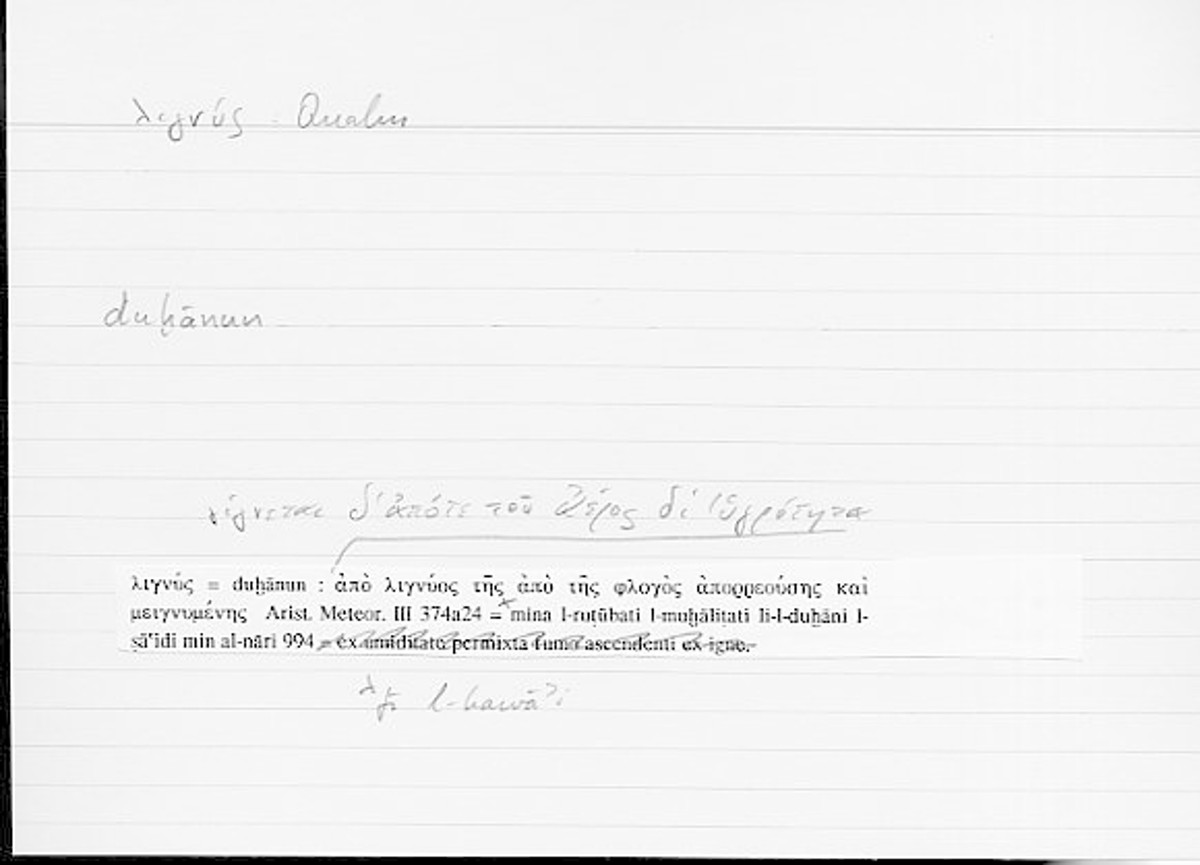 λιγνύς Qualm
duḫānun
γίγνεται δ' ἀπό τε τοῦ ἀέρος δι' ὑγρότητα
λιγνύς = duḫānun : ἀπὸ λιγνύος τῆς ἀπὸ τῆς φλογὸς ἀπορρεούσης καὶ
μειγνυμένης Arist. Meteor. III 374a24 = mina l-ruṭūbati l-muḫāliṭati li-l-duḫāni l-
ṣāʿidi min al-nāri 994 = ex umiditate permixta fumo ascendenti ex igne.
l-hawāʾi